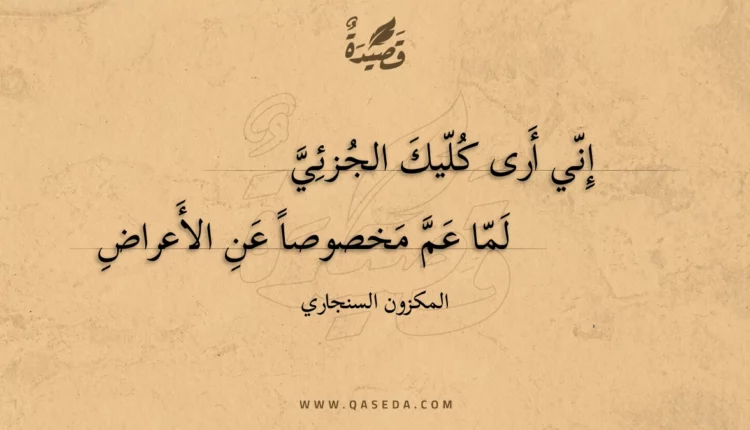 قَصِيدَةٌ
إِنّي أَرى كُلّيكَ الجُزئِيَّ
لَمّا عَمَّ مَخصوصاً عَنِ الأَعراضِ
المكزون السنجاري
WWW.QASEDA.COM